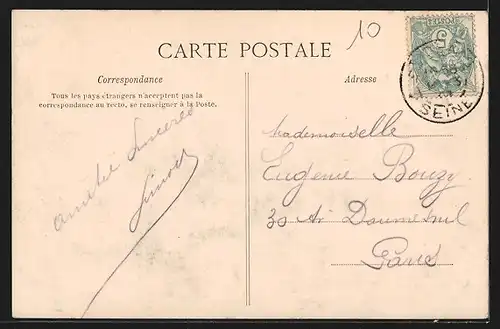 10
CARTE POSTALE
Correspondance
Tous les pays étrangers n'acceptent pas la
correspondance au recto, se renseigner à la Poste.
Amitié Sincères
Adresse
5
POSTES
SEINE
Mademoiselle
Eugénie Bouzy
30 Av Daumesnil
Paris